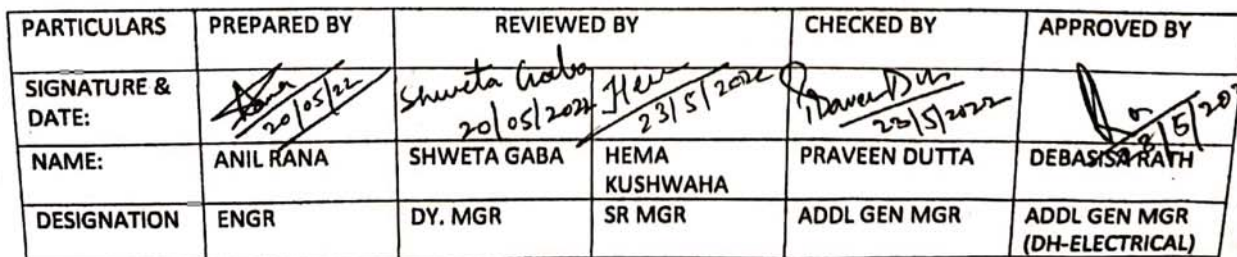 PARTICULARS PREPARED BY REVIEWED BY CHECKED BY APPROVED BY
SIGNATURE & DATE: 20/05/22 Shweta Gaba 20/05/2022 Hem 23/5/2022 Praveen Dutta 23/5/2022
NAME: ANIL RANA SHWETA GABA HEMA KUSHWAHA PRAVEEN DUTTA DEBASISA RATH
DESIGNATION ENGR DY. MGR SR MGR ADDL GEN MGR ADDL GEN MGR (DH-ELECTRICAL)